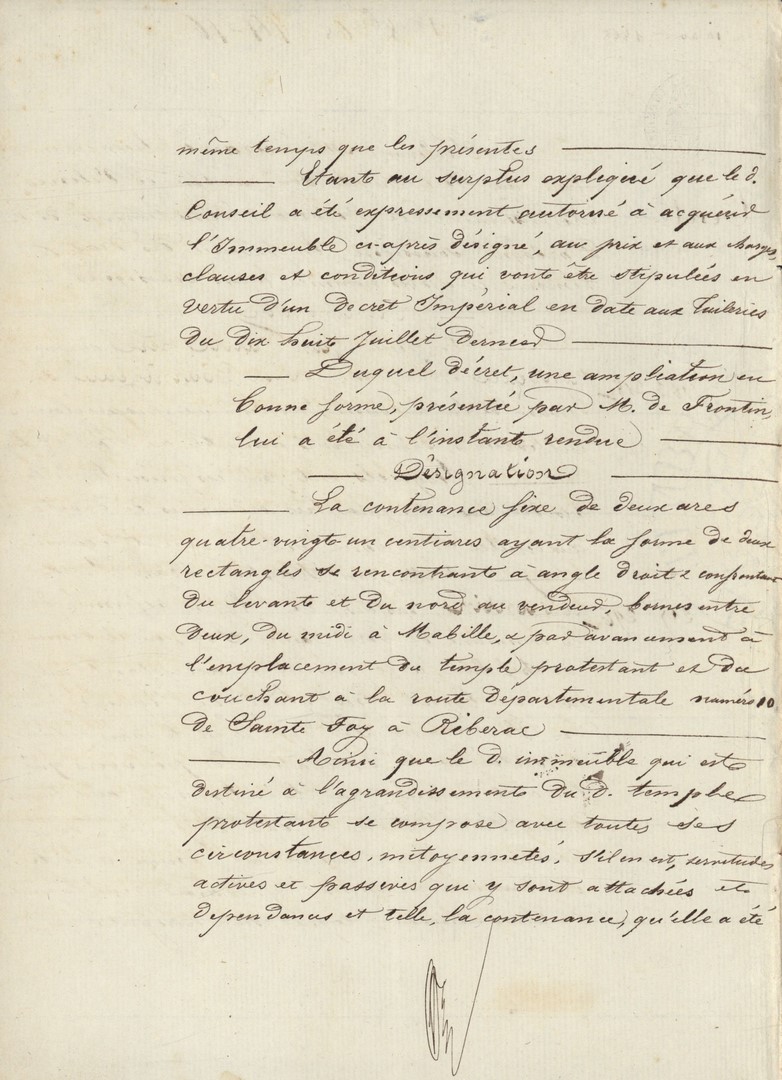 même temps que les présentes
Etant au surplus expliqué que le d.
Conseil a été expressement autorisé à acquérir
l'Immeuble ci-après désigné, au prix et aux charges,
clauses et conditions qui vont être stipulées en
vertu d'un Decret Impérial en date aux Tuileries
du dix huit Juillet dernier
Duquel décret, une ampliation en
bonne forme, présentée par M. de Frontin,
lui a été à l'instant rendue
Désignation
La contenance fixe de deux ares
quatre-vingt-un centiares ayant la forme de deux
rectangles se rencontrant à angle droit & confrontant
du levant et du nord au vendeur, bornes entre
deux, du midi à Mabille, & par avancement à
l'emplacement du temple protestant et du
couchant à la route Départementale numéro 10
de Sainte Foy à Riberac
Ainsi que le d. immeuble qui est
destiné à l'agrandissement du d. temple
protestant se compose avec toutes ses
circonstances, mitoyennetés, s'il en est, servitudes
actives et passives qui y sont attachées et
dependances et telle, la contenance, qu'elle a été